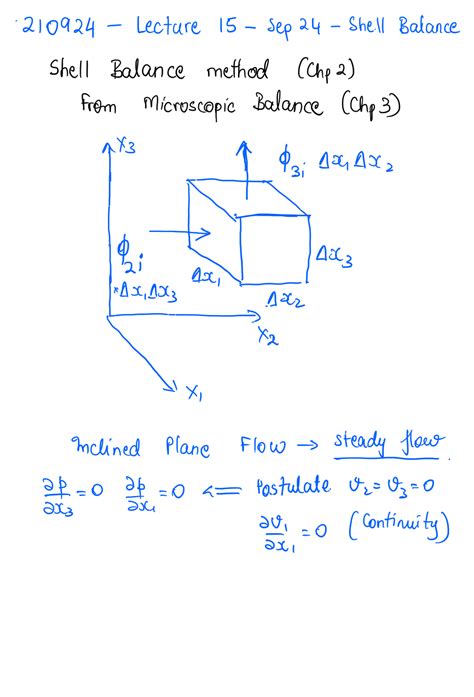 210924 - Lecture 15 - Sep 24 - Shell Balance
Shell Balance method (Chp 2)
From Microscopic Balance (Chp 3)
x₃
ϕ₃ᵢ Δx₁ Δx₂
ϕ₂ᵢ
*Δx₁Δx₃
Δx₁
Δx₃
Δx₂
x₂
x₁
Inclined Plane Flow → steady flow
∂p/∂x₃ = 0 ∂p/∂x₁ = 0 <= Postulate v₂ = v₃ = 0
∂v₁/∂x₁ = 0 (Continuity)